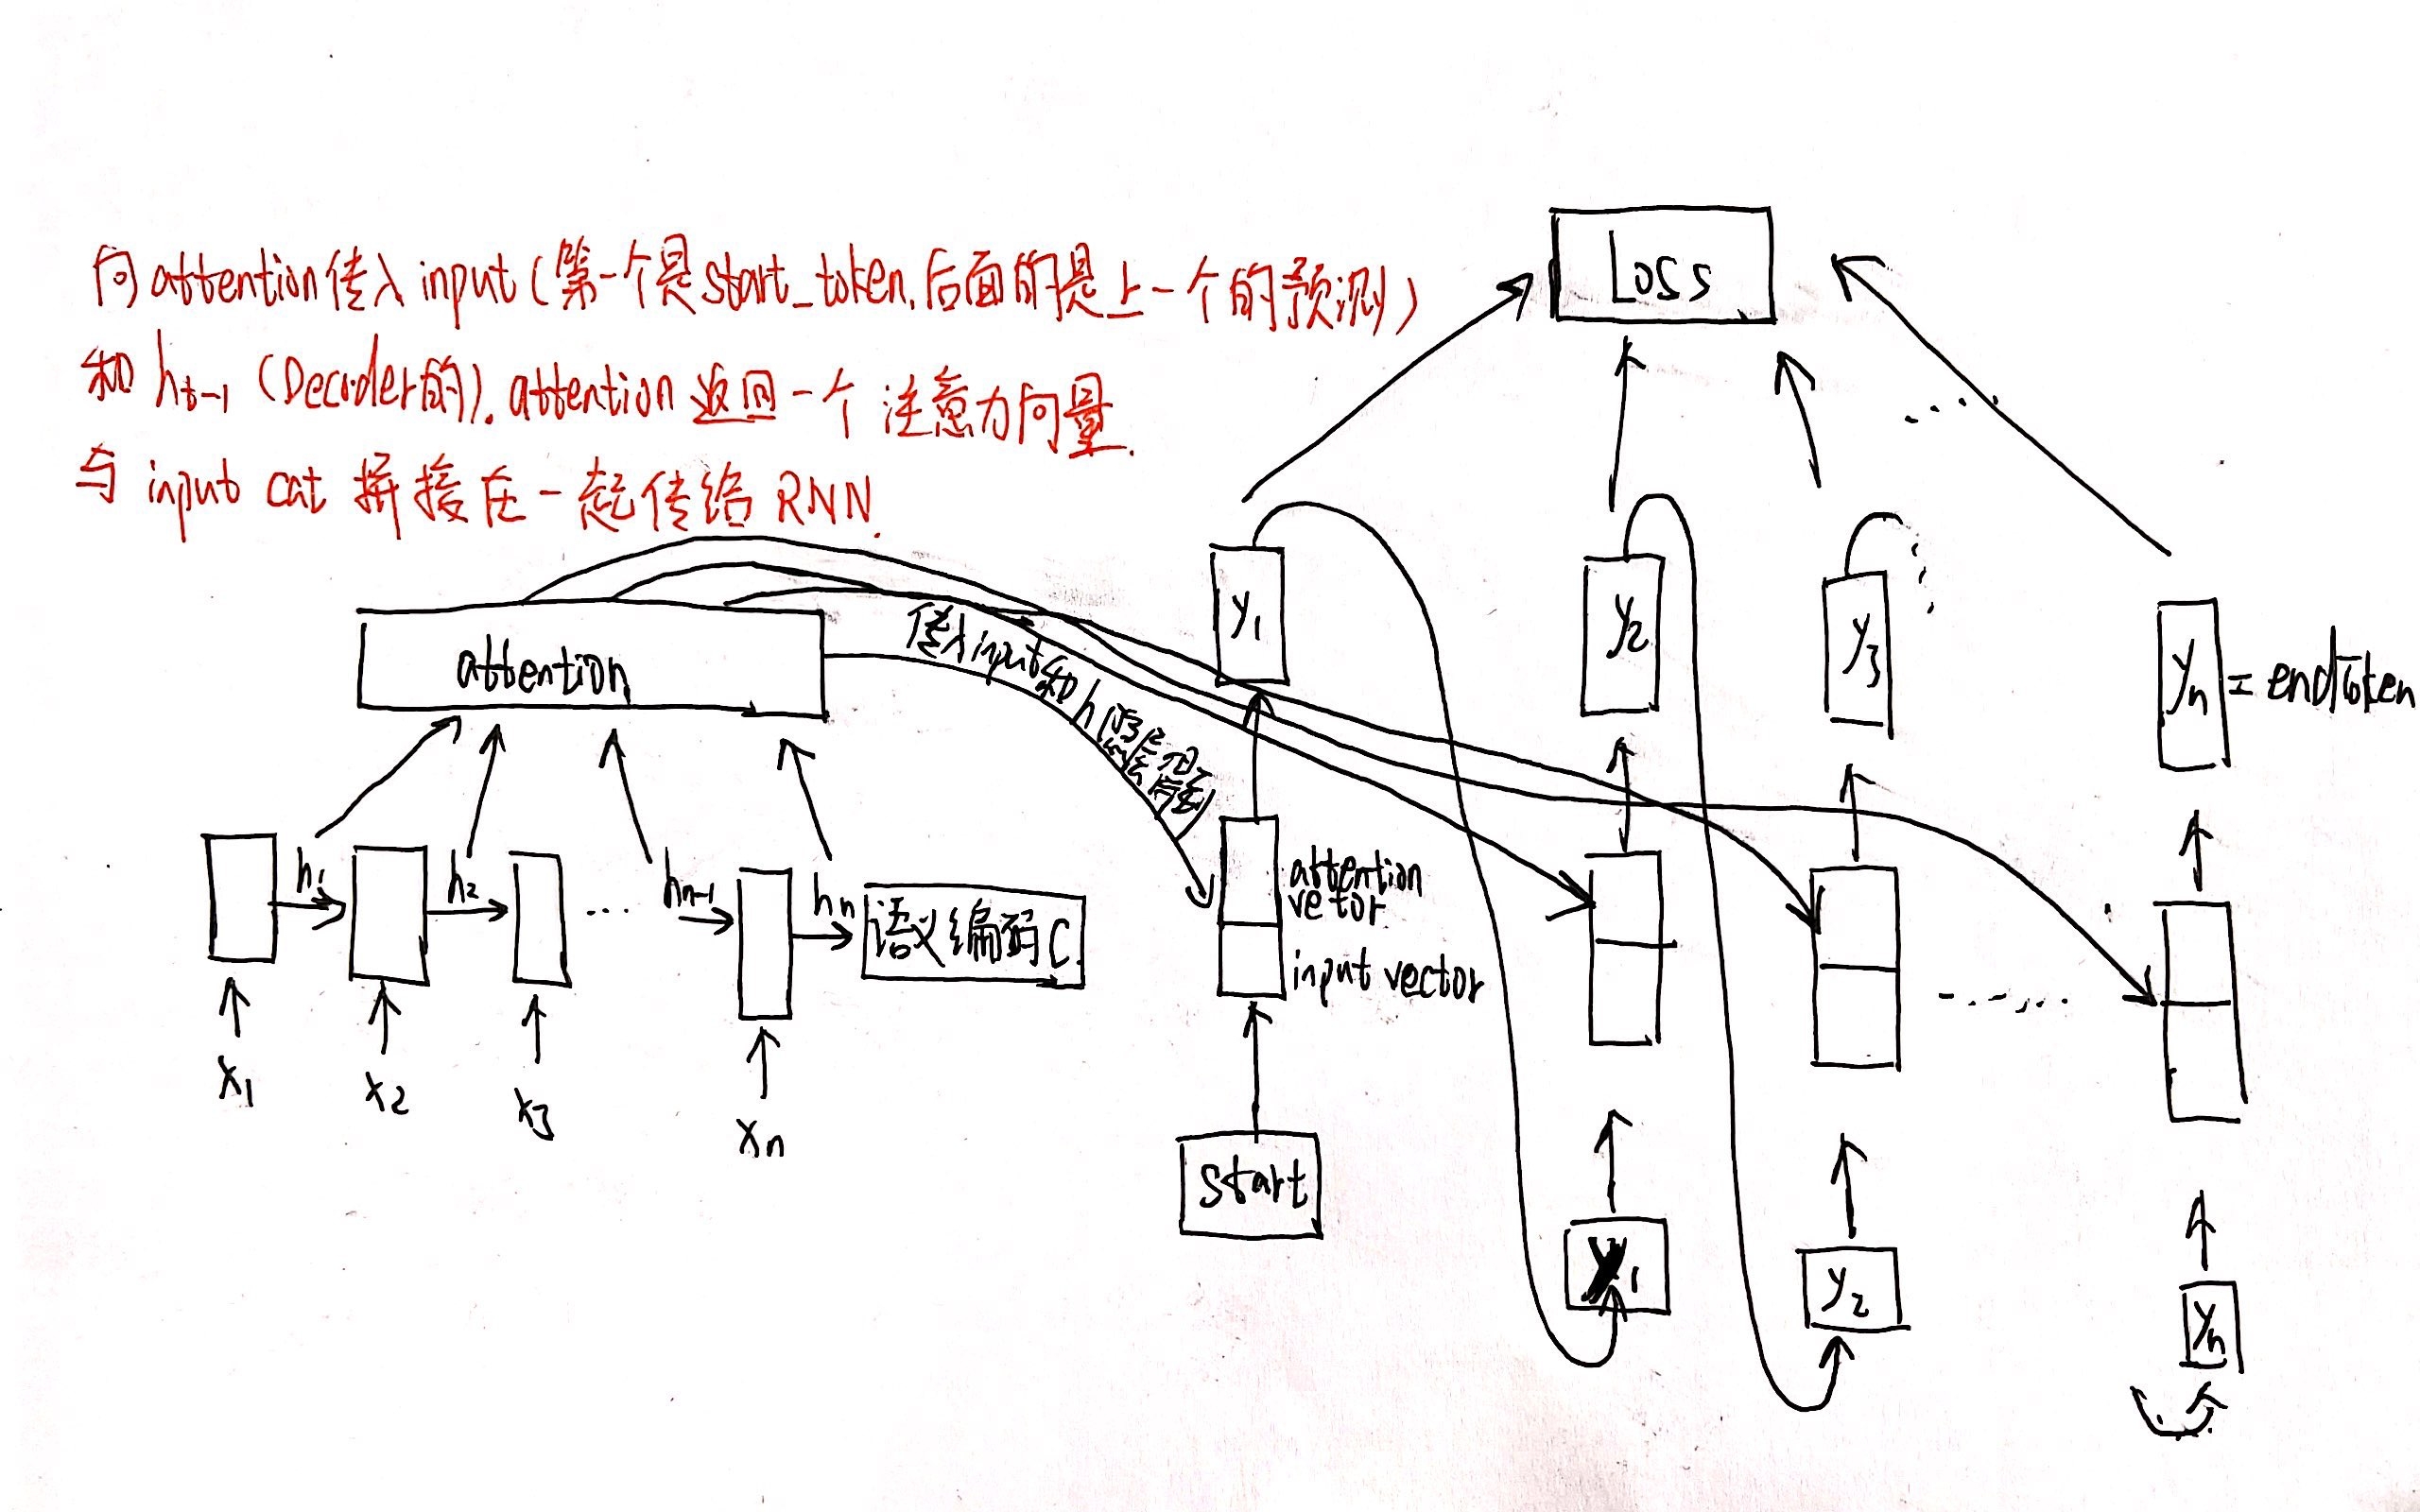 向attention传入input(第一个是start_token,后面的是上一个的预测)
和 ht-1 (Decoder的). attention返回一个注意力向量.
与 input cat 拼接在一起传给 RNN.
Loss
y1
y2
y3
yn = endToken
attention
传入input和h
h1
h2
hn-1
hn
语义编码C.
attention
vetor
input vector
x1
x2
x3
xn
start
y1
y2
yn